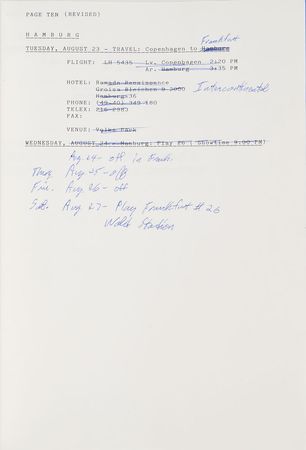 PAGE TEN (REVISED)
HAMBURG
Frankfurt
TUESDAY, AUGUST 23 - TRAVEL: Copenhagen to Hamburg
FLIGHT: LH 5435 Lv. Copenhagen 2:20 PM
Ar. Hamburg 3:35 PM
HOTEL: Ramada Renaissance
Intercontinental
Grosse Bleichen D 2000
Hamburg 36
PHONE: (49-40) 349 180
TELEX: 216 2983
FAX:
VENUE: Volks Park
WEDNESDAY, AUGUST 24 - Hamburg: Play #26 ( Showtime 9:00 PM)
Aug 24 - off in Frank.
Thurs. Aug 25 - off
Fri. Aug 26 - off
Sat. Aug 27 - Play Frankfurt # 26
Stadion